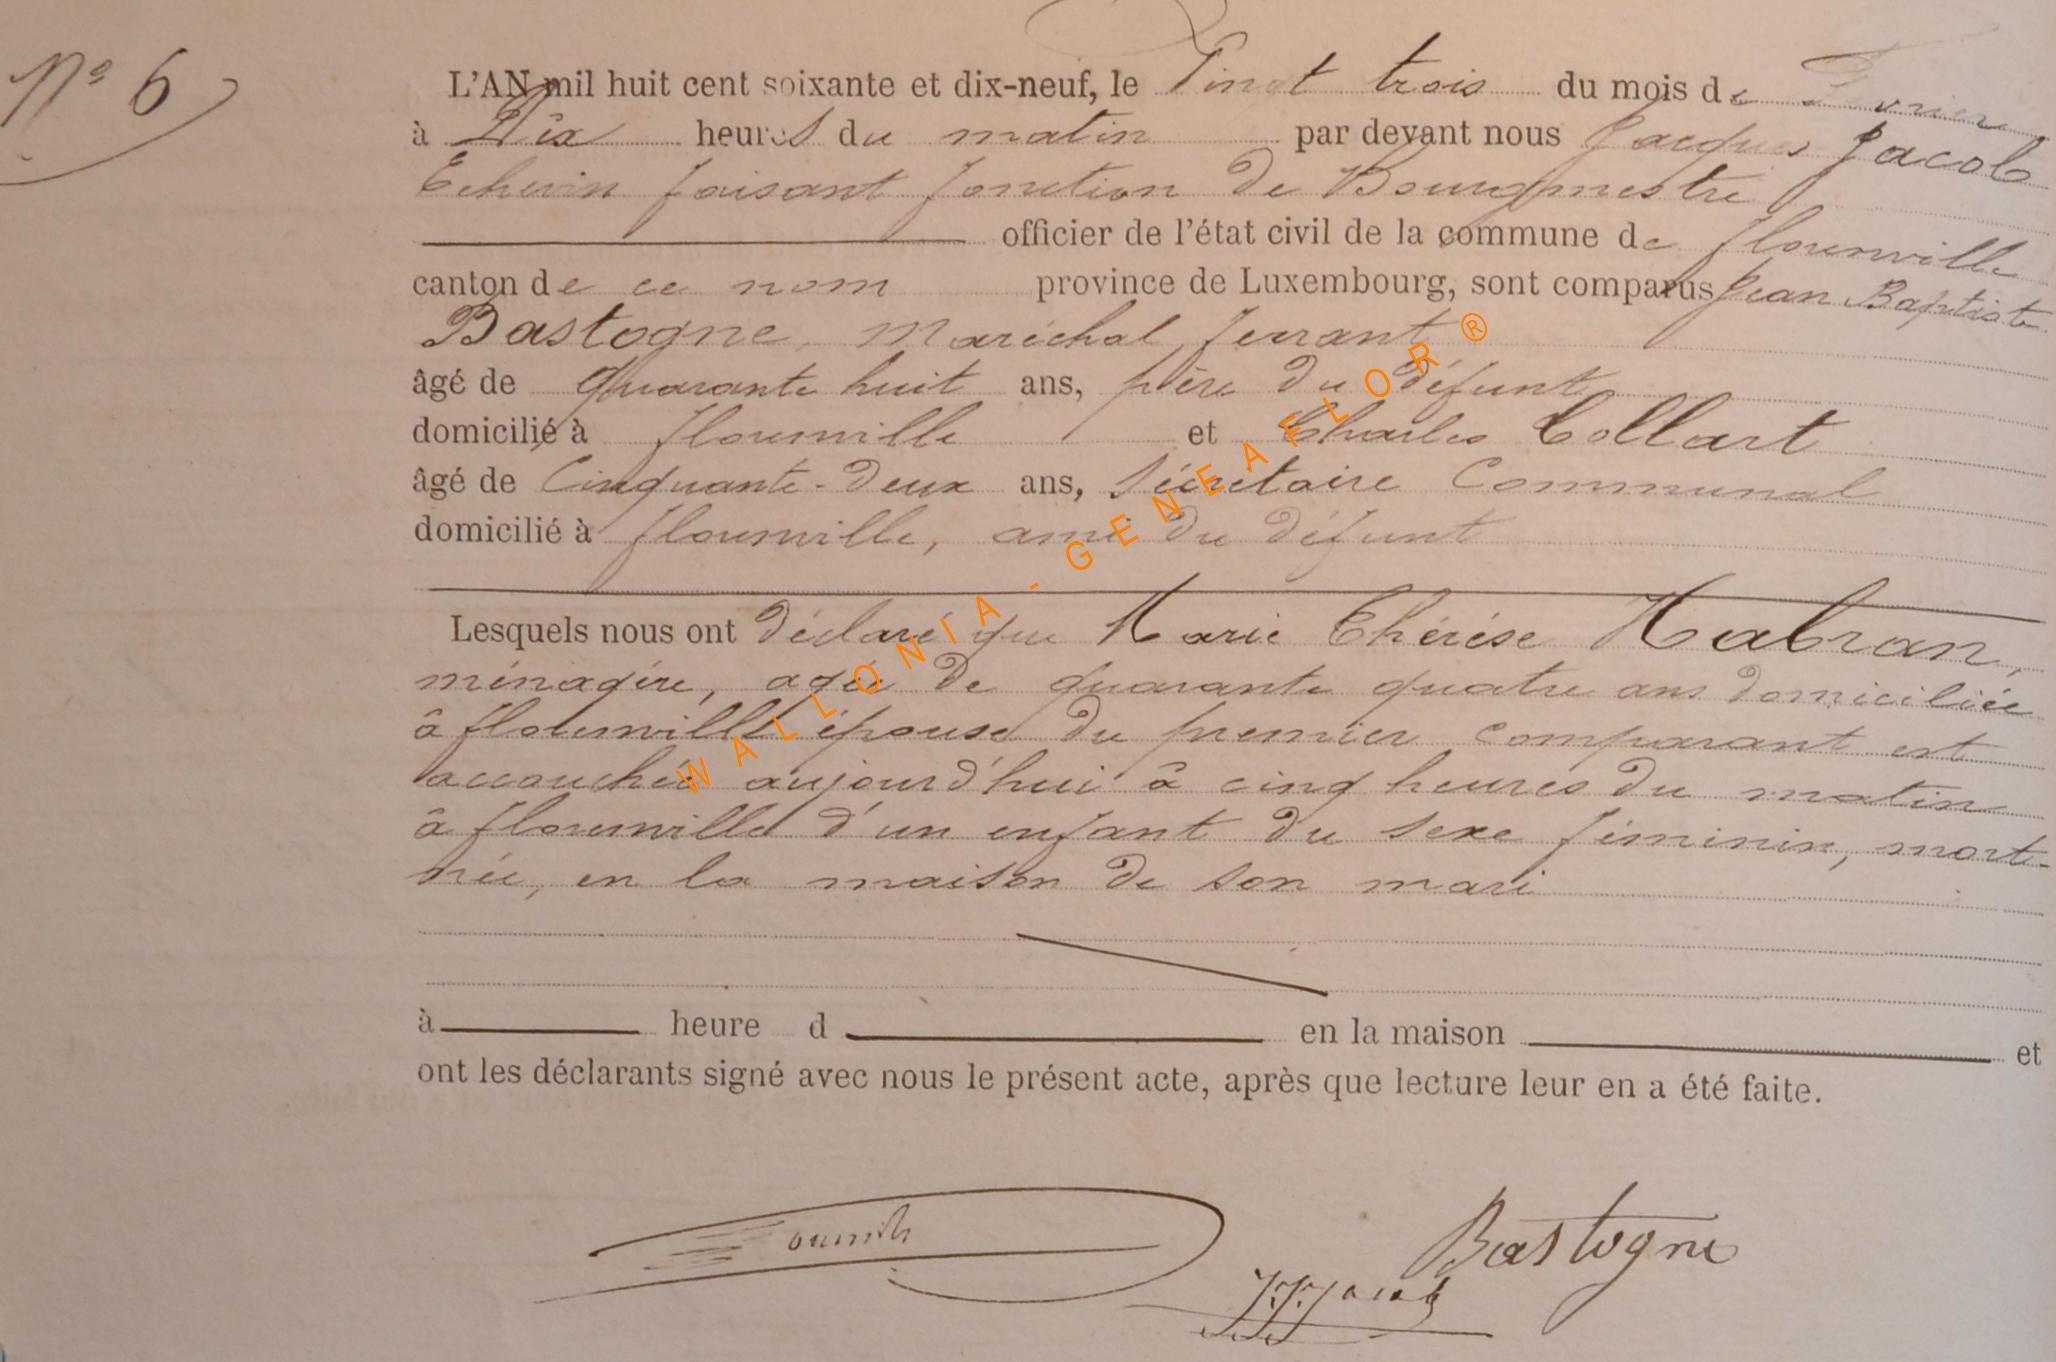 N° 6
L'AN mil huit cent soixante et dix-neuf, le Vingt trois du mois de Fevrier
à Dix heures du matin par devant nous Jacques Jacob
Echevin faisant fonction de Bourgmestre
officier de l'état civil de la commune de florenville
canton de ce nom province de Luxembourg, sont comparus Jean Baptiste
Bastogne, Maréchal ferrant
âgé de quarante huit ans, père du défunt
domicilié à florenville et Charles Collart
âgé de Cinquante-deux ans, Sécretaire Communal
domicilié à florenville, ami du défunt
Lesquels nous ont déclaré que Marie Thérése Habran,
ménagére, agée de quarante quatre ans domiciliée
à florenville épouse du premier comparant est
accouchée aujourd'hui à cinq heures du matin
à florenville d'un enfant du sexe féminin, mort-
née, en la maison de son mari
à heure d en la maison et
ont les déclarants signé avec nous le présent acte, après que lecture leur en a été faite.
Bastogne
JJ Jacob
WALLONIA - GENEAFLOR ®